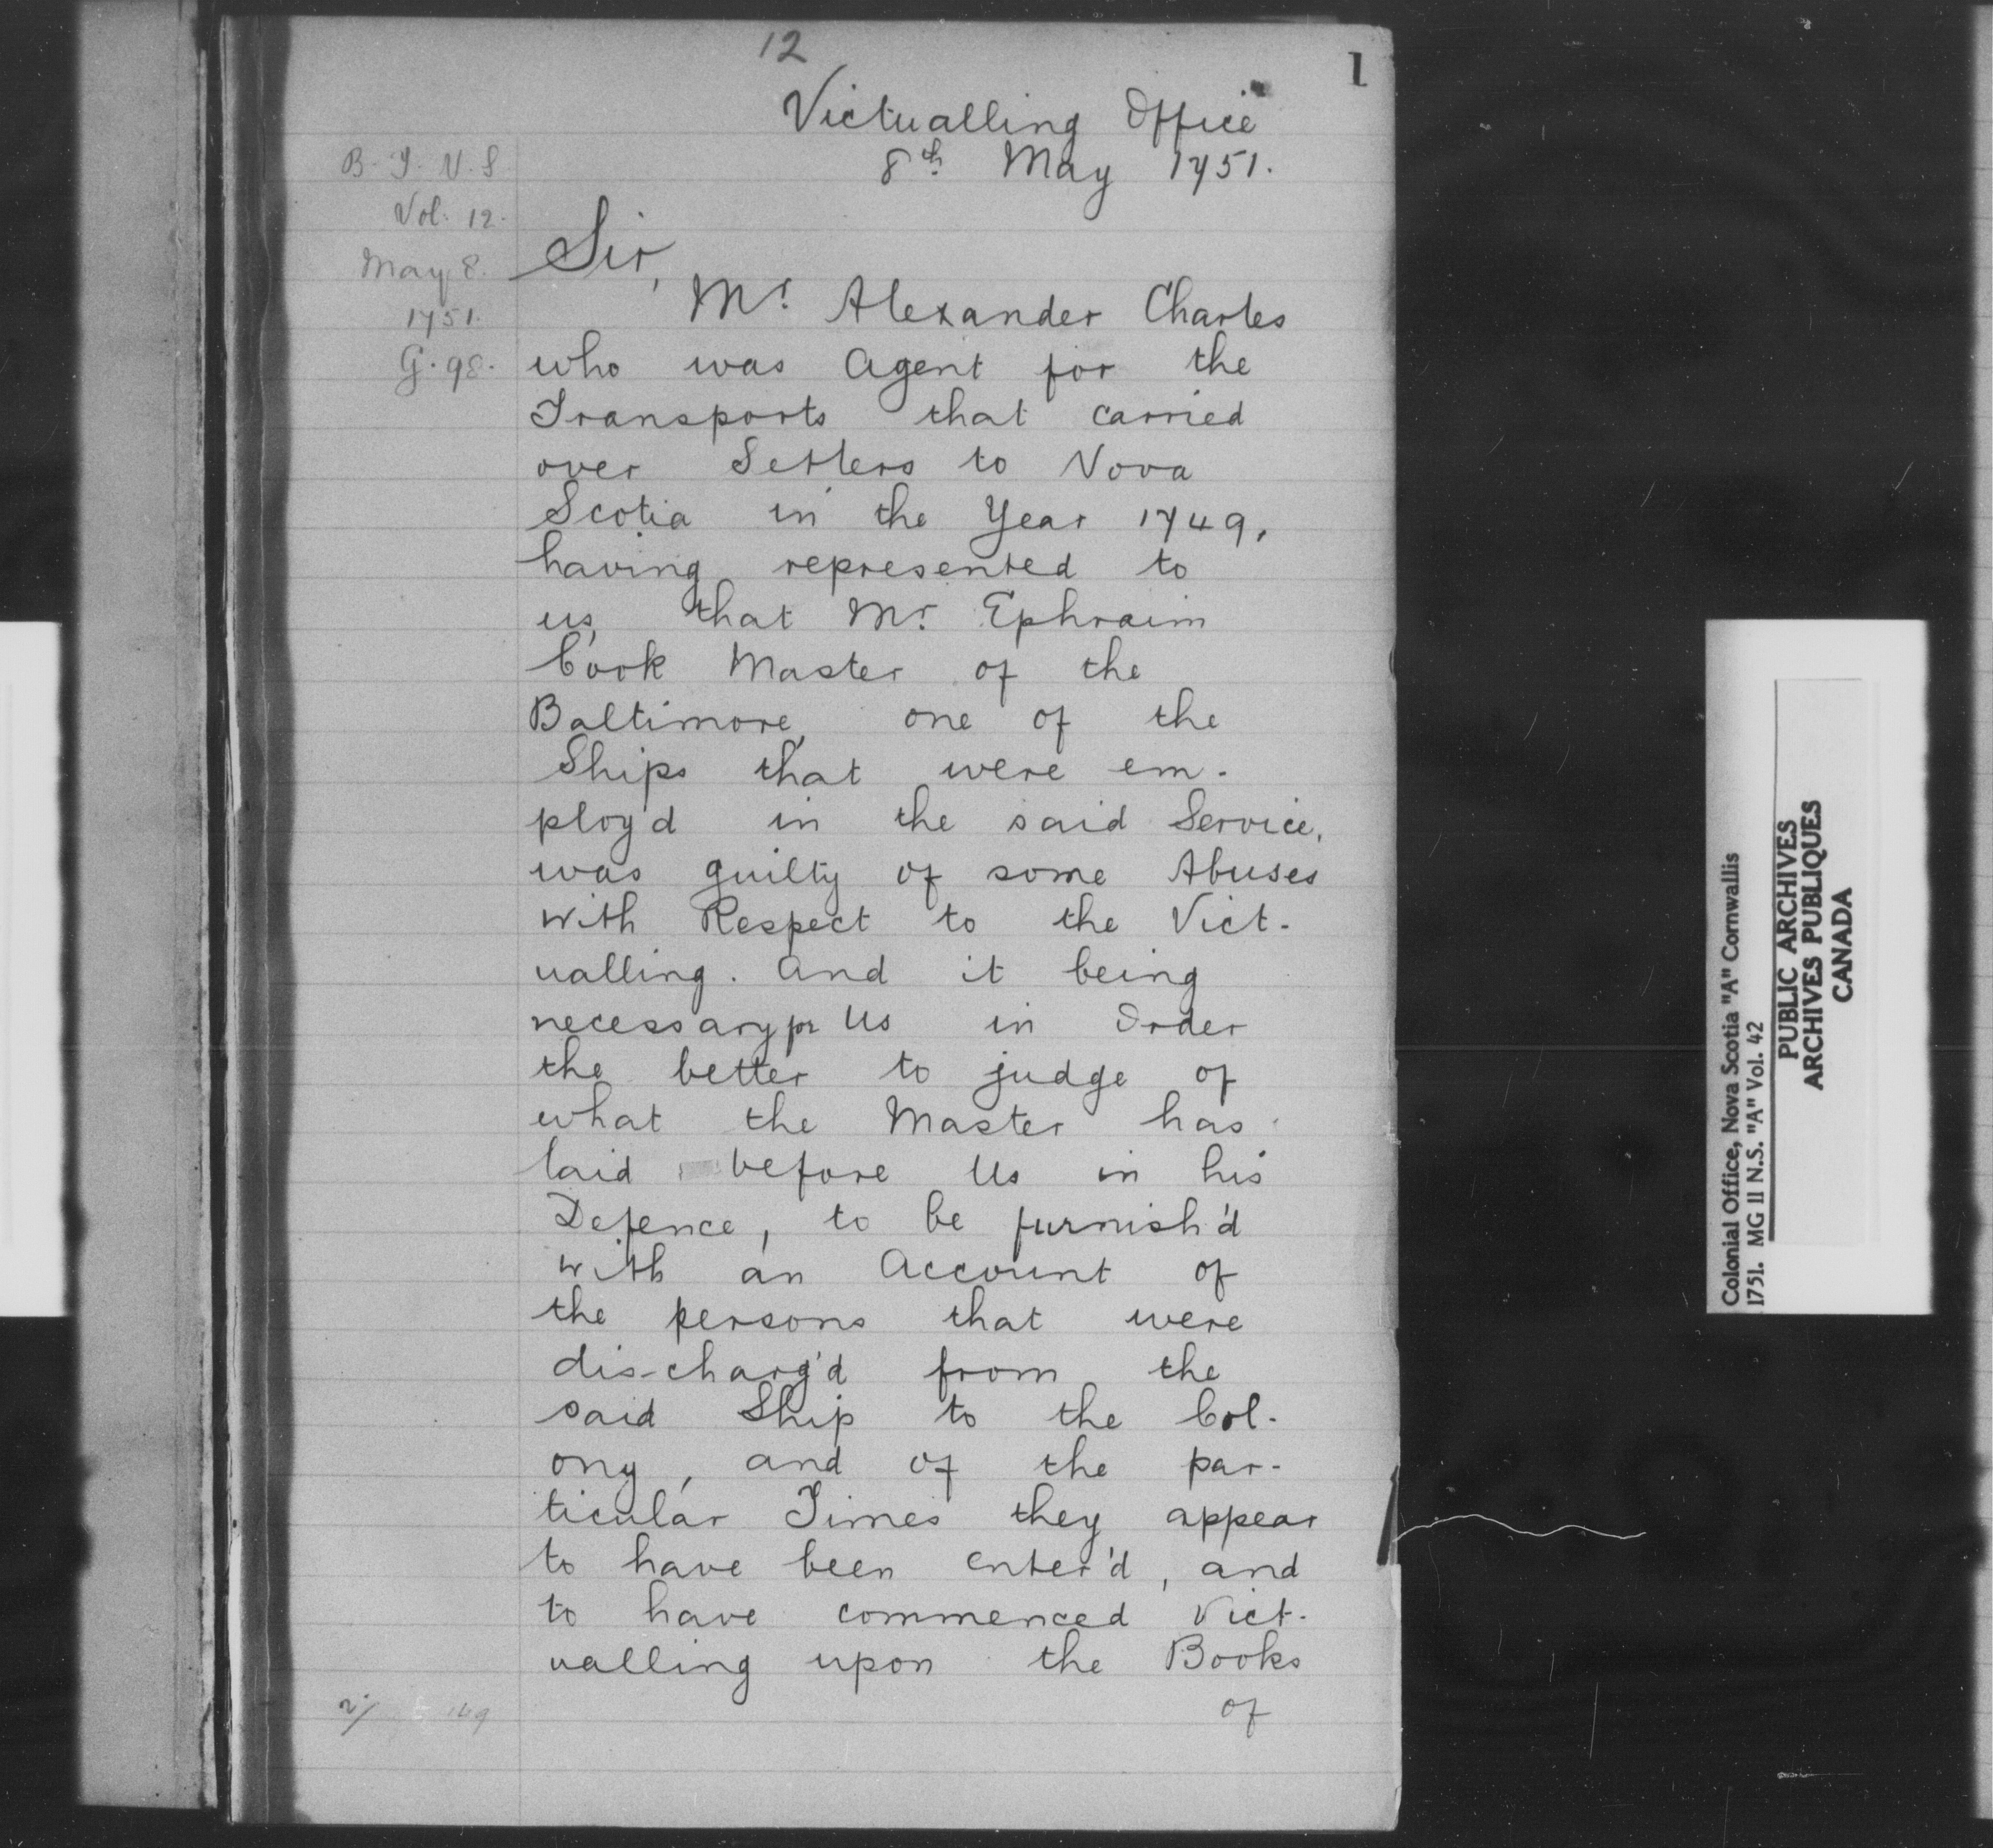 12
1
Victualling Office
8th May 1751.
B. T. N. S.
Vol. 12.
May 8.
1751.
G. 98.
Sir,
Mr. Alexander Charles
who was Agent for the
Transports that carried
over Settlers to Nova
Scotia in the Year 1749,
having represented to
us, that Mr. Ephraim
Cook Master of the
Baltimore, one of the
Ships that were em-
ploy'd in the said Service,
was guilty of some Abuses
with Respect to the Vict-
ualling. And it being
necessary for Us in Order
the better to judge of
what the Master has
laid before Us in his
Defence, to be furnish'd
with an Account of
the persons that were
dis-charg'd from the
said Ship to the Col-
ony, and of the par-
ticular Times they appear
to have been enter'd, and
to have commenced Vict-
ualling upon the Books
of
Colonial Office, Nova Scotia "A" Cornwallis
1751. MG 11 N.S. "A" Vol. 42
PUBLIC ARCHIVES
ARCHIVES PUBLIQUES
CANADA